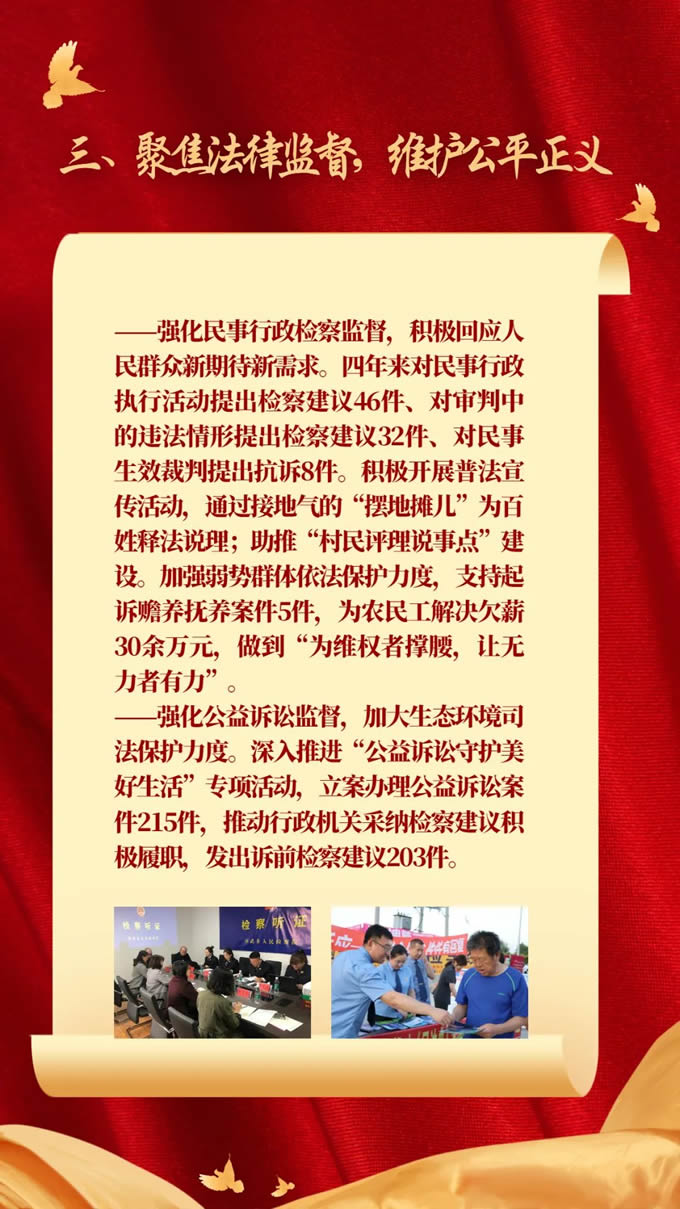 三、聚焦法律监督，维护公平正义
——强化民事行政检察监督，积极回应人
民群众新期待新需求。四年来对民事行政
执行活动提出检察建议46件、对审判中
的违法情形提出检察建议32件、对民事
生效裁判提出抗诉8件。积极开展普法宣
传活动，通过接地气的“摆地摊儿”为百
姓释法说理；助推“村民评理说事点”建
设。加强弱势群体依法保护力度，支持起
诉赡养抚养案件5件，为农民工解决欠薪
30余万元，做到“为维权者撑腰，让无
力者有力”。
——强化公益诉讼监督，加大生态环境司
法保护力度。深入推进“公益诉讼守护美
好生活”专项活动，立案办理公益诉讼案
件215件，推动行政机关采纳检察建议积
极履职，发出诉前检察建议203件。
检察听证
检察听证